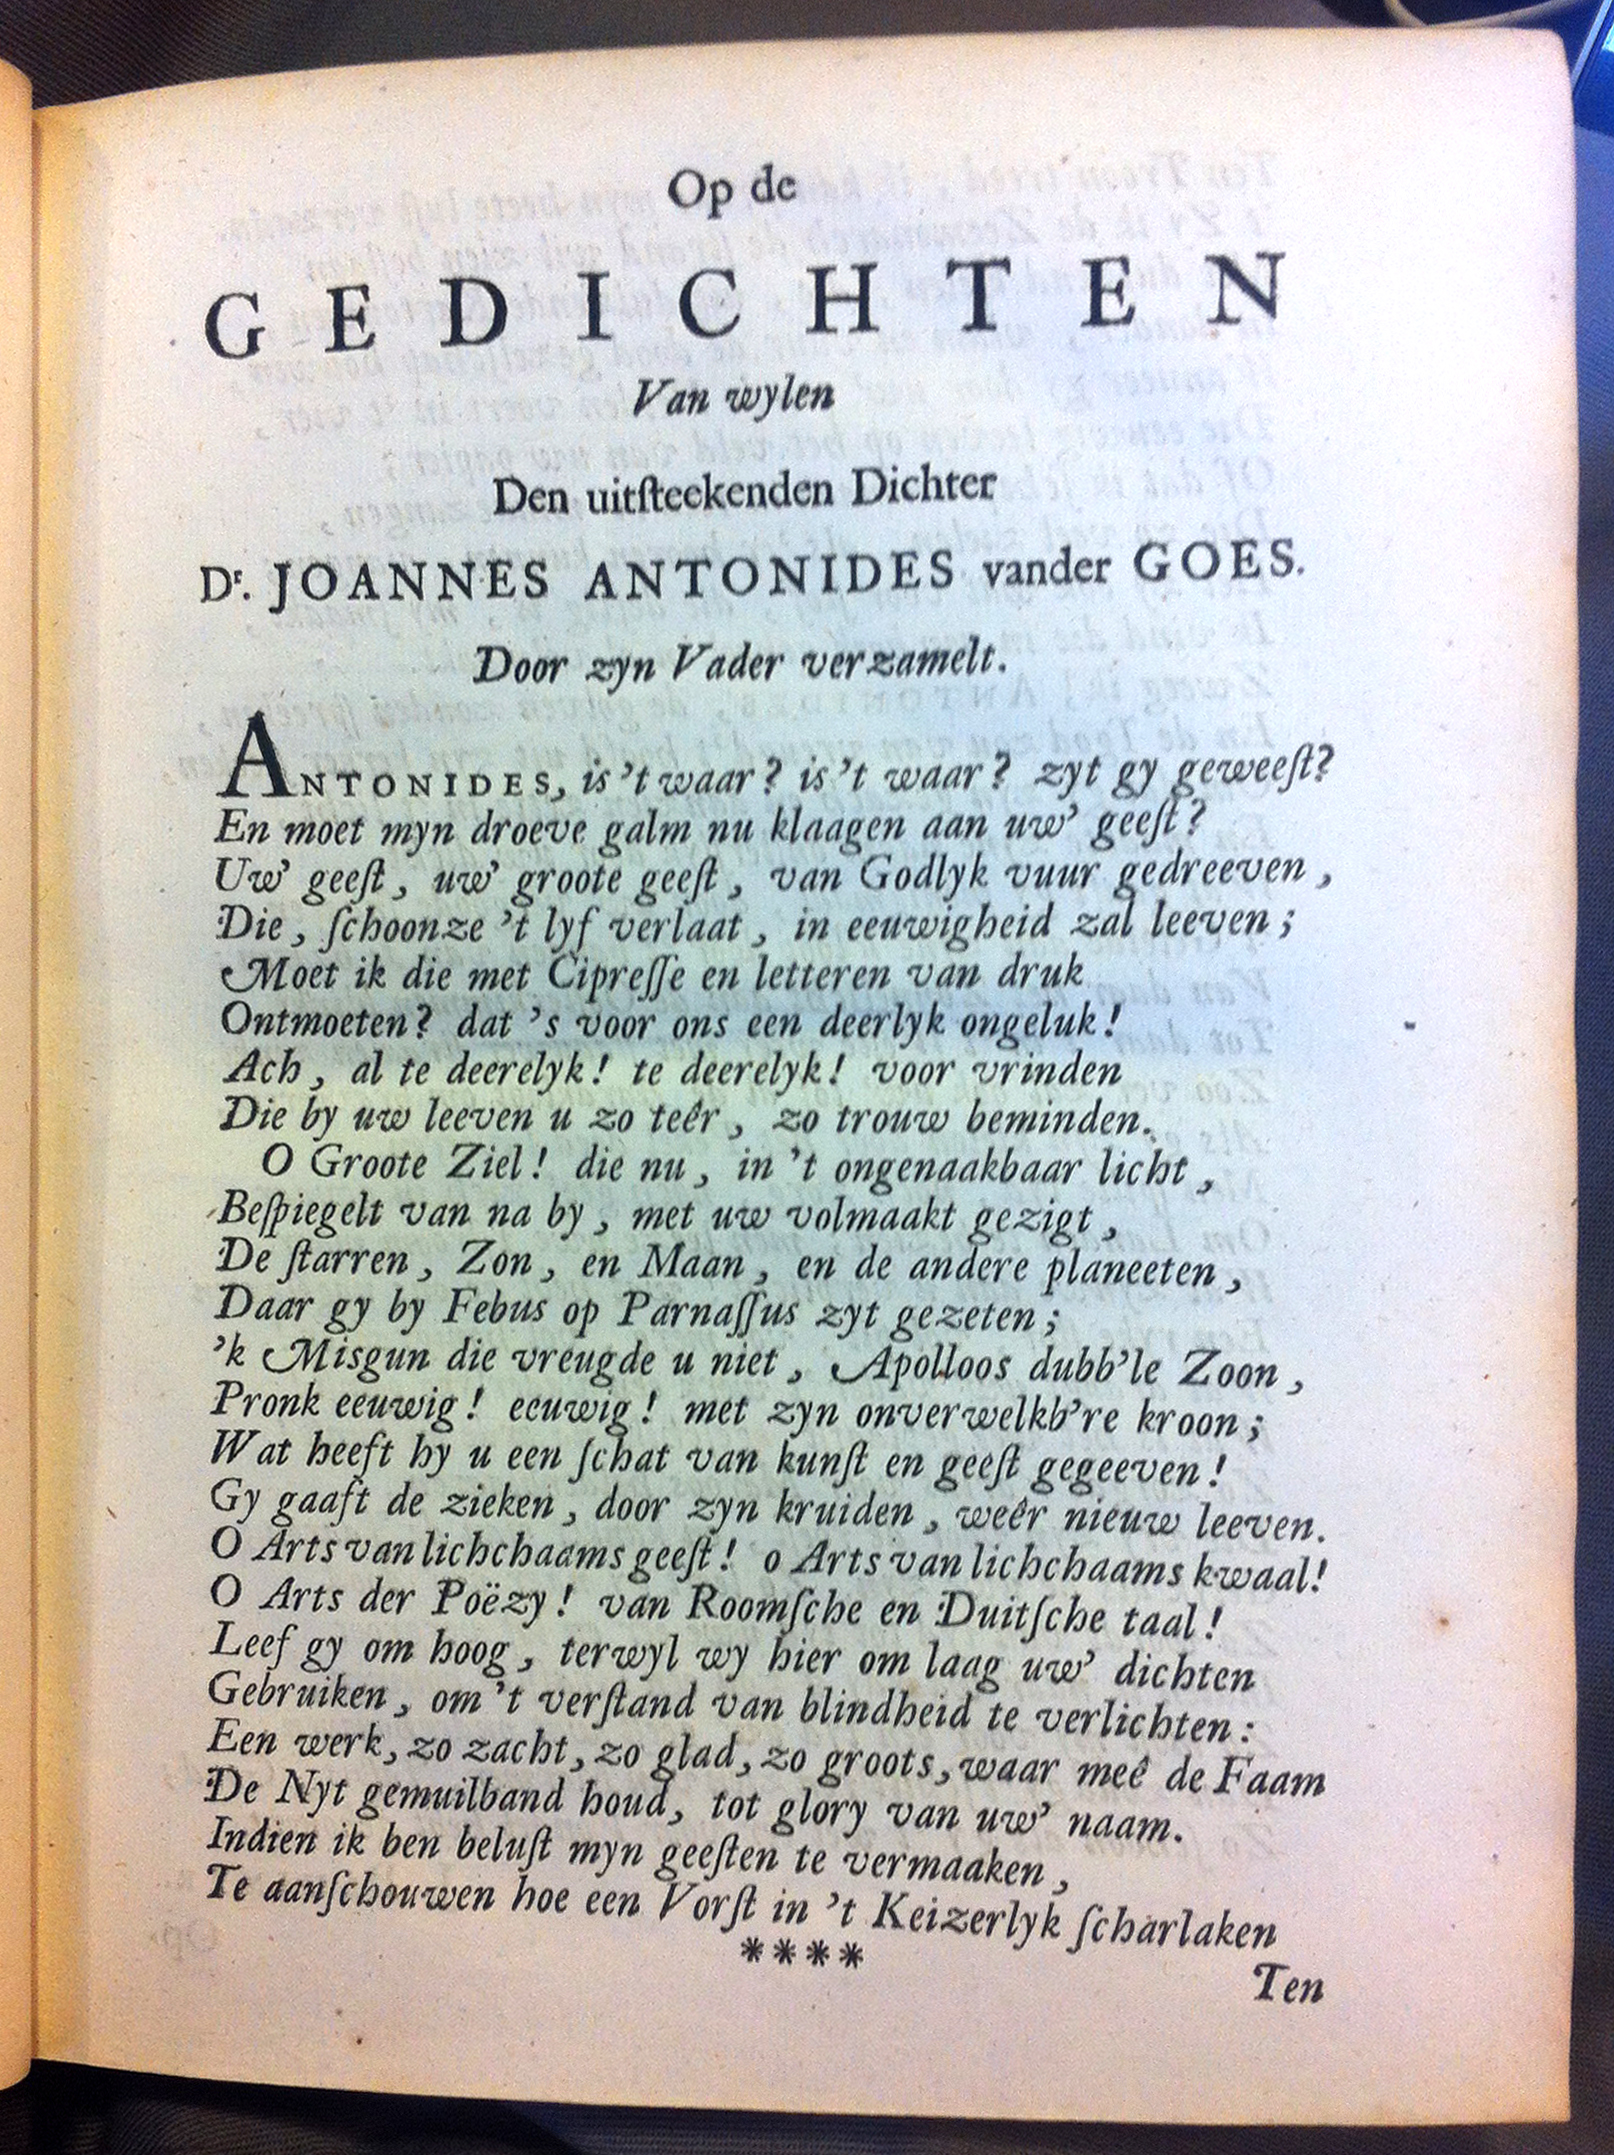 Op de
GEDICHTEN
Van wylen
Den uitſteekenden Dichter
Dr. JOANNES ANTONIDES vander GOES.
Door zyn Vader verzamelt.
ANTONIDES, is 't waar? is 't waar? zyt gy geweeſt?
En moet myn droeve galm nu klaagen aan uw' geeſt?
Uw' geeſt, uw' groote geeſt, van Godlyk vuur gedreeven,
Die, ſchoonze 't lyf verlaat, in eeuwigheid zal leeven;
Moet ik die met Cipreſſe en letteren van druk
Ontmoeten? dat 's voor ons een deerlyk ongeluk!
Ach, al te deerelyk! te deerelyk! voor vrinden
Die by uw leeven u zo teêr, zo trouw beminden.
O Groote Ziel! die nu, in 't ongenaakbaar licht,
Beſpiegelt van na by, met uw volmaakt gezigt,
De ſtarren, Zon, en Maan, en de andere planeeten,
Daar gy by Febus op Parnaſſus zyt gezeten;
'k Misgun die vreugde u niet, Apolloos dubb'le Zoon,
Pronk eeuwig! eeuwig! met zyn onverwelkb're kroon;
Wat heeft hy u een ſchat van kunſt en geeſt gegeeven!
Gy gaaft de zieken, door zyn kruiden, weêr nieuw leeven.
O Arts van lichchaams geeſt! o Arts van lichchaams kwaal!
O Arts der Poëzy! van Roomſche en Duitſche taal!
Leef gy om hoog, terwyl wy hier om laag uw' dichten
Gebruiken, om 't verſtand van blindheid te verlichten:
Een werk, zo zacht, zo glad, zo groots, waar meê de Faam
De Nyt gemuilband houd, tot glory van uw' naam.
Indien ik ben beluſt myn geeſten te vermaaken,
Te aanſchouwen hoe een Vorſt in 't Keizerlyk ſcharlaken
****
Ten